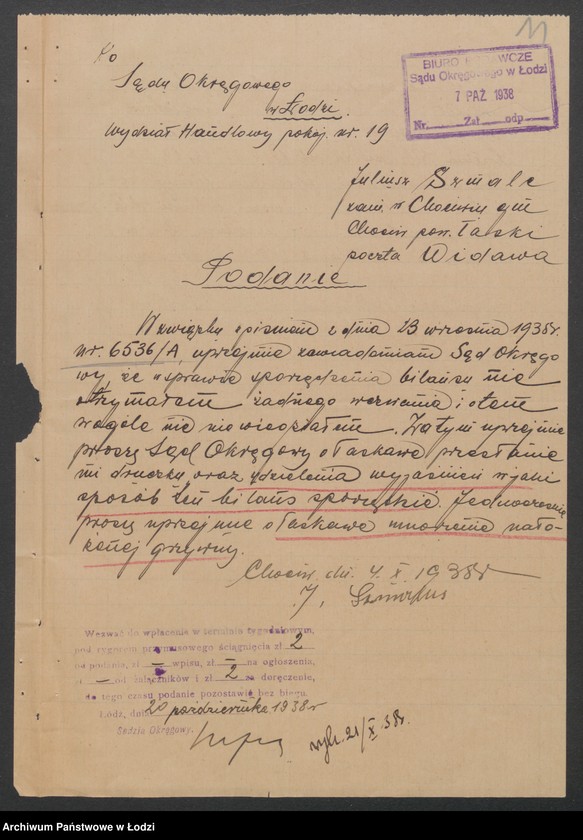 11
Do
Sądu Okręgowego
w Łodzi.
Wydział Handlowy pokój. nr. 19
BIURO
Sądu Okręgowego w Łodzi
7 PAŹ 1938
Nr. Zał odp
Juliusz Szmalc
zam. w Chociwiu gm
Chociw pow. Łaski
poczta Widawa
Podanie
W związku pismem z dnia 23 września 1938r.
nr. 6536/A, uprzejmie zawiadamiam Sąd Okręgo
wy, że w sprawie sporządzenia bilansu nie
otrzymałem żadnego wezwania i otem
wogóle nie wiedziałem. Zatym uprzejmie
proszę Sąd Okręgowy o łaskawe przesłanie
mi druczku oraz udzielenia wyjaśnień w jaki
sposób ten bilans sporządzić. Jednocześnie
proszę uprzejmie o łaskawe umorzenie nało-
żonej grzywny.
Chociw, dn. 4. X. 1938r
J.
Wezwać do wpłacenia w terminie tygodniowym,
pod rygorem przymusowego ściągnięcia zł 2
na podania, zł — wpisu, zł — na ogłoszenia,
zł — od załączników i zł 2 za doręczenie,
do tego czasu podanie pozostawić bez biegu.
Łódź, dnia 20 października 1938 r
Sędzia Okręgowy.
wyk. 21/X 38r.
Archiwum Państwowe w Łodzi